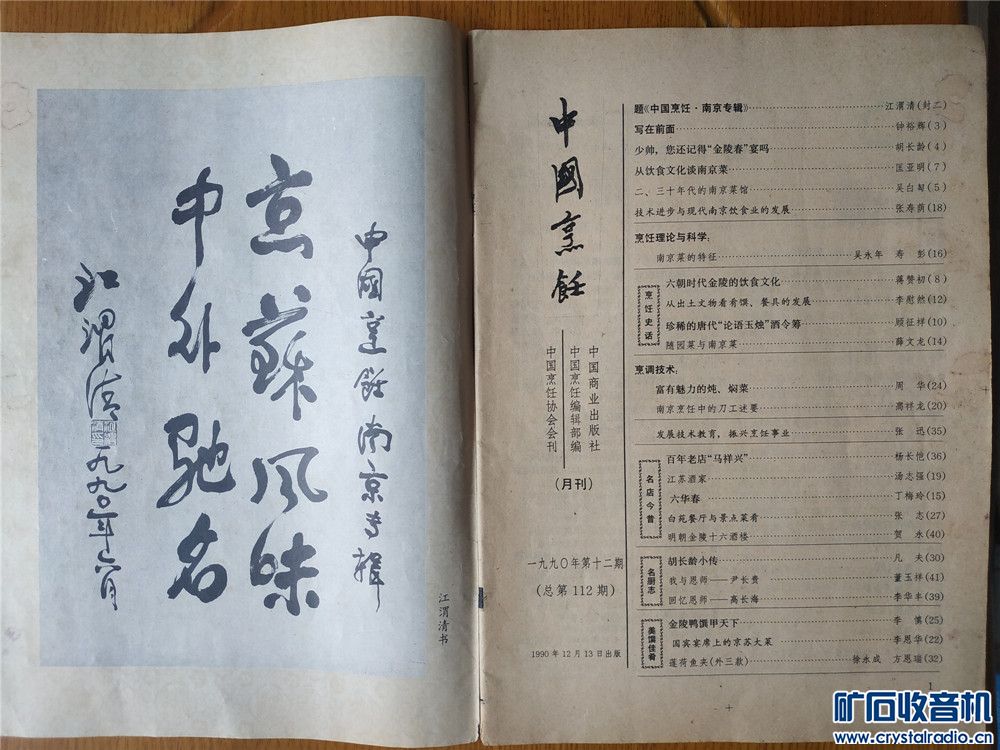 中國烹飪南京专辑
京蘇风味
中外驰名
江渭清
一九九〇年六月
江渭清书
中國烹飪
中国商业出版社
中国烹饪编辑部编
中国烹饪协会会刊
(月刊)
一九九〇年第十二期
(总第112期)
1990年12月13日出版
题《中国烹饪·南京专辑》 江渭清(封二)
写在前面 钟裕辉(3)
少帅，您还记得“金陵春”宴吗 胡长龄(4)
从饮食文化谈南京菜 匡亚明(7)
二、三十年代的南京菜馆 吴白匋(5)
技术进步与现代南京饮食业的发展 张寿荫(18)
烹饪理论与科学：
南京菜的特征 吴永年 寿彭(16)
烹饪史话
六朝时代金陵的饮食文化 蒋赞初(8)
从出土文物看肴馔、餐具的发展 李蔚然(12)
珍稀的唐代“论语玉烛”酒令筹 顾征祥(10)
随园菜与南京菜 薛文龙(14)
烹调技术：
富有魅力的炖、焖菜 周华(24)
南京烹饪中的刀工述要 高祥龙(20)
发展技术教育，振兴烹饪事业 张迅(35)
名店今昔
百年老店“马祥兴” 杨长恺(36)
江苏酒家 汤志强(19)
六华春 丁梅玲(15)
白苑餐厅与景点菜肴 张志(27)
明朝金陵十六酒楼 贺永(40)
名厨志
胡长龄小传 凡夫(30)
我与恩师——尹长贵 董玉祥(41)
回忆恩师——高长海 李华丰(39)
美馔佳肴
金陵鸭馔甲天下 李慎(25)
国宾宴席上的京苏大菜 李恩华(22)
莲荷鱼夹(外三款) 徐永成 方恩瑞(32)
1
矿石收音机
www.crystalradio.cn